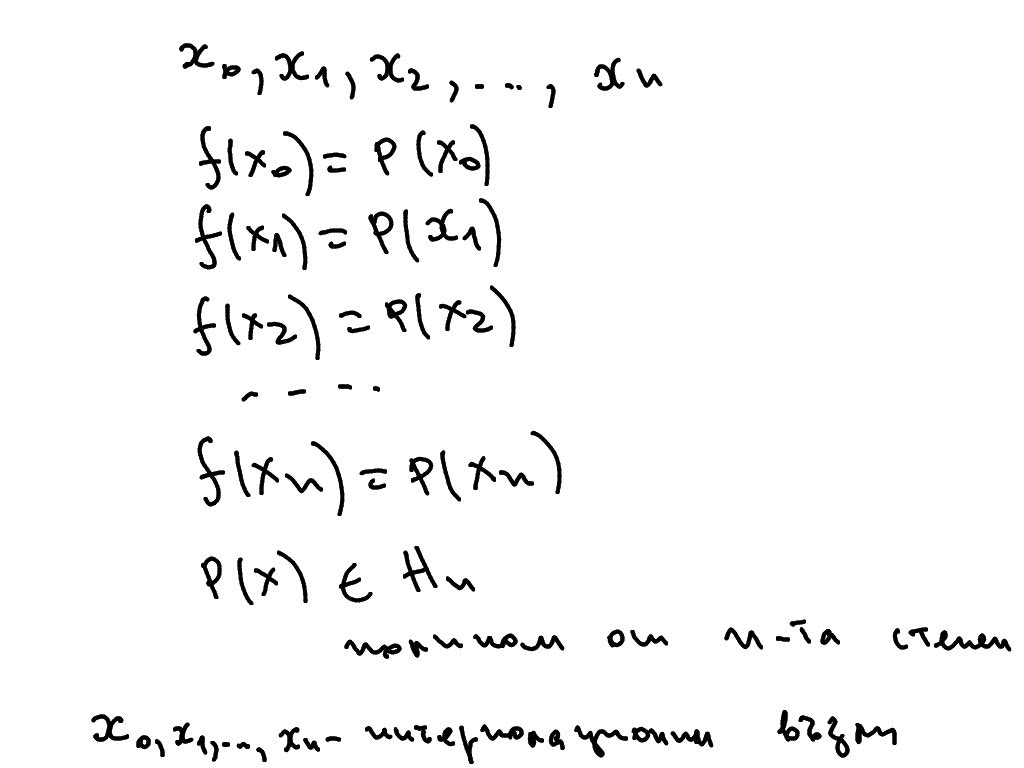 x₀, x₁, x₂, ..., xₙ
f(x₀) = P(x₀)
f(x₁) = P(x₁)
f(x₂) = P(x₂)
....
f(xₙ) = P(xₙ)
P(x) ∈ Hₙ
полином от n-та степен
x₀, x₁, ..., xₙ - интерполационни възли